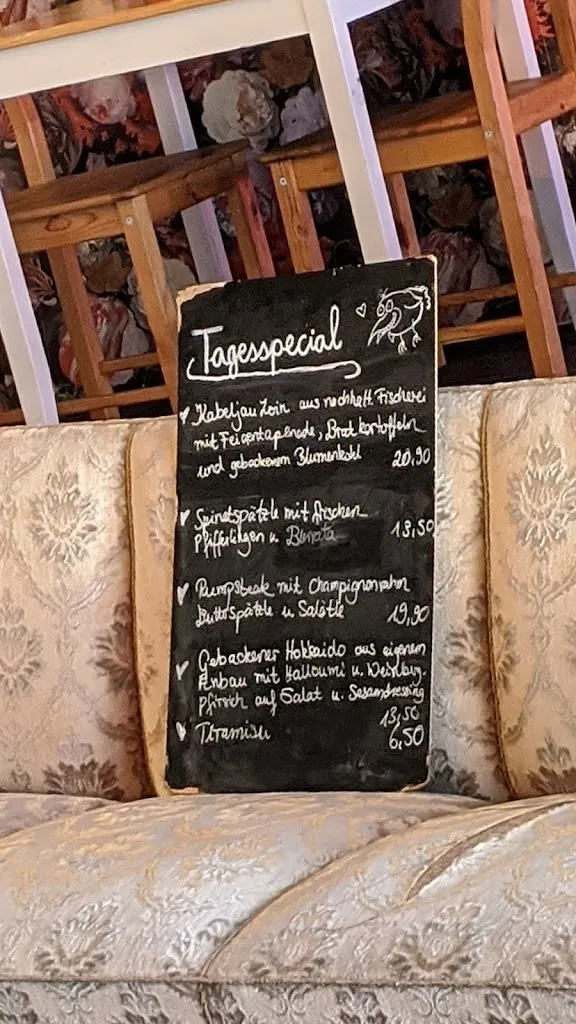 Tagesspecial
Kabeljau Loin aus nachhalt. Fischerei
mit Feigentapenade, Bratkartoffeln
und gebackenem Blumenkohl 20,90
Spinatspätzle mit frischen
Pfifferlingen u. Burrata 13,50
Rumpsteak mit Champignonrahm
Butterspätzle u. Salätle 19,90
Gebackener Hokkaido aus eigenem
Anbau mit Halloumi u. Weinberg-
pfirsich auf Salat u. Sesamdressing
13,50
Tiramisu 6,50